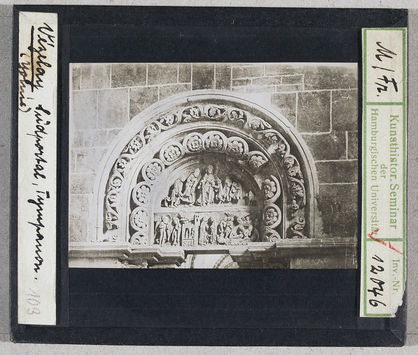 Vézelay, Südportal, Tympanon.
(Yonne)
103
M/Fr.
Kunsthistor Seminar
der
Hamburgischen Universität
Inv.-Nr.
12046